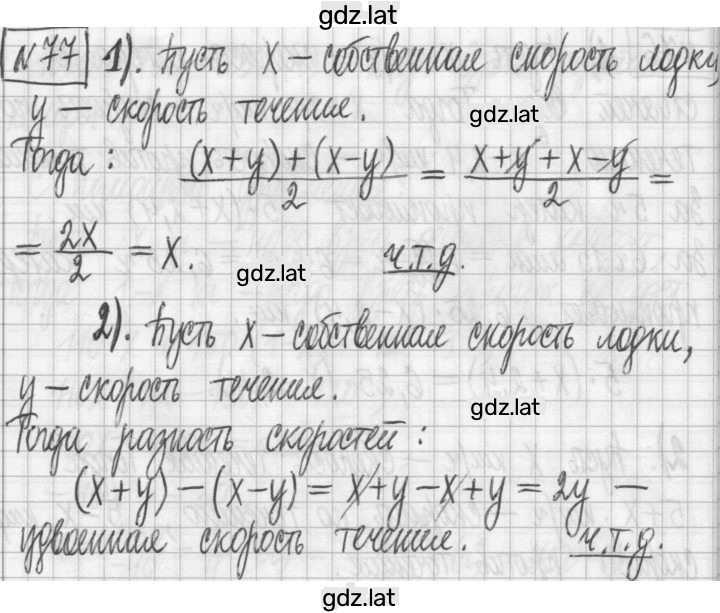 gdz.lat
№77 1). Пусть x – собственная скорость лодки,
y – скорость течения.
gdz.lat
Тогда: (x+y)+(x-y)/2 = x+y+x-y/2 =
= 2x/2 = x. ч.т.д.
gdz.lat
2). Пусть x – собственная скорость лодки,
y – скорость течения.
gdz.lat
Тогда разность скоростей:
(x+y) – (x-y) = x+y-x+y = 2y –
удвоенная скорость течения. ч.т.д.
gdz.lat